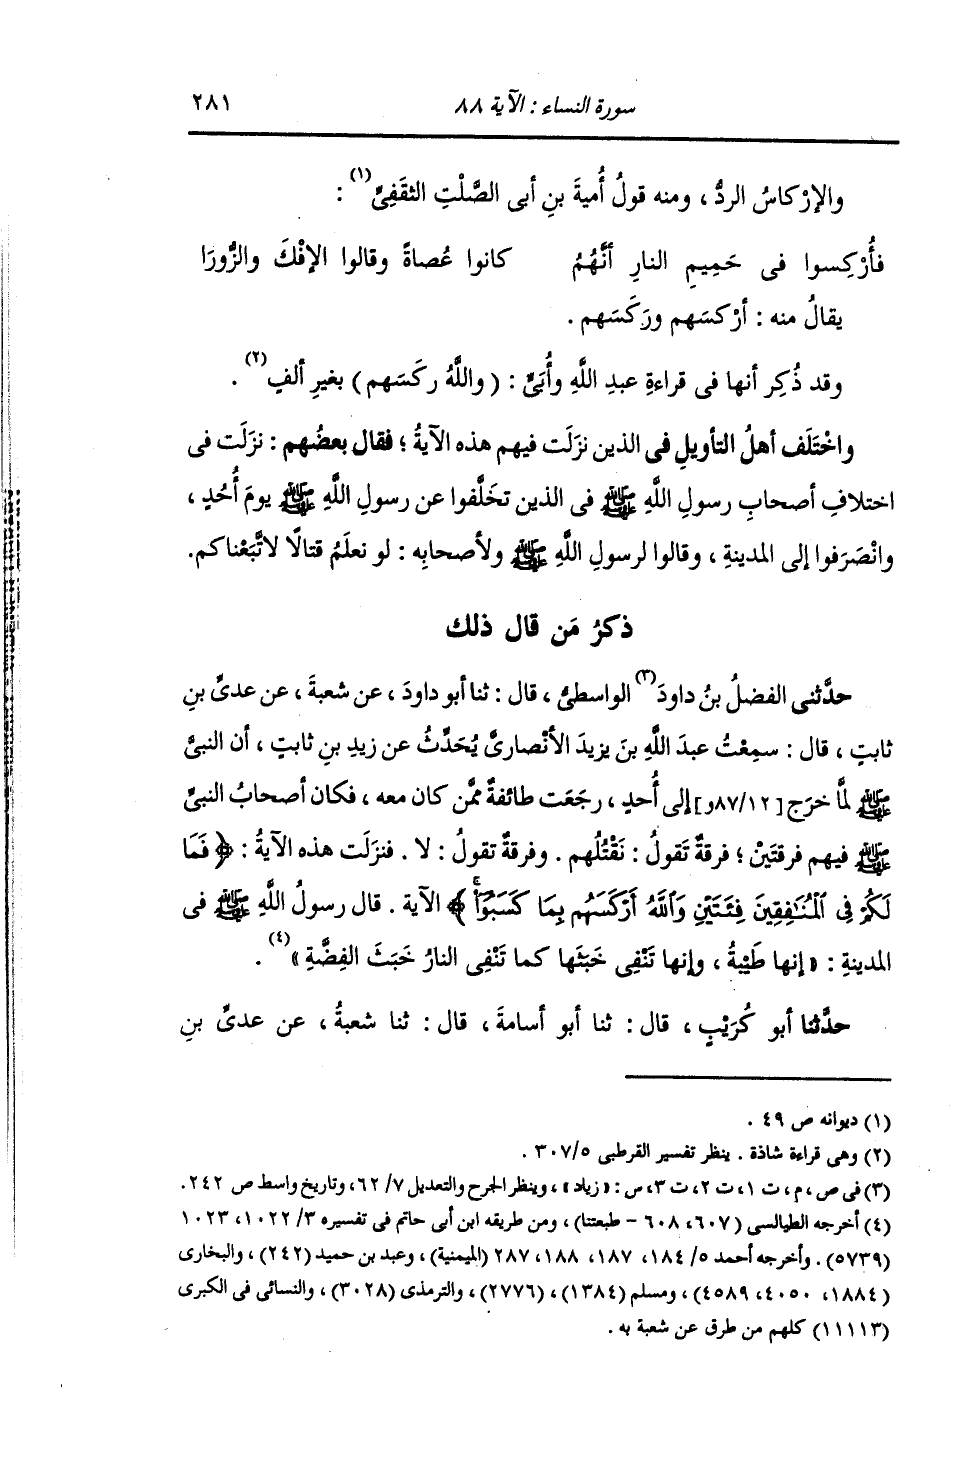 سورة النساء : الآية ٨٨
٢٨١
والإرْكاسُ الردُّ ، ومنه قولُ أُميةَ بنِ أبى الصَّلْتِ الثقَفِىِّ(١) :
فأُرْكِسوا فى حَمِيمِ النارِ أنَّهُمُ كانوا عُصاةً وقالوا الإفْكَ والزُّورَا
يقالُ منه : أرْكسَهم ورَكَسَهم .
وقد ذُكِر أنها فى قراءةِ عبدِ اللَّهِ وأُبَىٍّ : ( واللَّهُ ركَسَهم ) بغيرِ ألفٍ(٢) .
واخْتَلَف أهلُ التأويلِ فى الذين نزَلَت فيهم هذه الآيةُ ؛ فقال بعضُهم : نزَلَت فى
اختلافِ أصحابِ رسولِ اللَّهِ ﷺ فى الذين تخَلَّفوا عن رسولِ اللَّهِ ﷺ يومَ أُحُدٍ ،
وانْصَرَفوا إلى المدينةِ ، وقالوا لرسولِ اللَّهِ ﷺ ولأصحابِه : لو نعلَمُ قتالًا لاتَّبَعْناكم.
ذكرُ مَن قال ذلك
حدَّثنى الفضلُ بنُ داودَ(٣) الواسطىُّ ، قال : ثنا أبو داودَ ، عن شعبةَ ، عن عدىِّ بنِ
ثابتٍ ، قال : سمِعْتُ عبدَ اللَّهِ بنَ يزيدَ الأنْصارىَّ يُحَدِّثُ عن زيدِ بنِ ثابتٍ ، أن النبىَّ
ﷺ لمَّا خرَج [٨٧/١٢و] إلى أُحدٍ ، رجَعَت طائفةٌ ممَّن كان معه ، فكان أصحابُ النبىِّ
ﷺ فيهم فرقتَيْن ؛ فرقةٌ تَقولُ : نَقْتُلُهم . وفرقةٌ تقولُ : لا . فنزلَت هذه الآيةُ : ﴿ فَمَا
لَكُمْ فِى ٱلْمُنَٰفِقِينَ فِئَتَيْنِ وَٱللَّهُ أَرْكَسَهُم بِمَا كَسَبُوٓا۟ۚ ﴾ الآية . قال رسولُ اللَّهِ ﷺ فى
المدينةِ : « إنها طَيْبةُ ، وإنها تَنْفِى خَبَثَها كما تَنْفِى النارُ خَبَثَ الفِضَّةِ »(٤) .
حدَّثنا أبو كُرَيْبٍ ، قال : ثنا أبو أسامةَ ، قال : ثنا شعبةُ ، عن عدىِّ بنِ
(١) ديوانه ص ٤٩ .
(٢) وهى قراءة شاذة . ينظر تفسير القرطبى ٣٠٧/٥ .
(٣) فى ص ، م ، ت ١، ت ٢، ت ٣، س : « زياد » ، وينظر الجرح والتعديل ٧/ ٦٢، وتاريخ واسط ص ٢٤٢.
(٤) أخرجه الطيالسى (٦٠٧، ٦٠٨ - طبعتنا) ، ومن طريقه ابن أبى حاتم فى تفسيره ٣/ ١٠٢٢، ١٠٢٣
(٥٧٣٩) . وأخرجه أحمد ٥/ ١٨٤، ١٨٧، ١٨٨، ٢٨٧ (الميمنية) ، وعبد بن حميد (٢٤٢) ، والبخارى
(١٨٨٤، ٤٠٥٠، ٤٥٨٩) ، ومسلم (١٣٨٤) ، (٢٧٧٦) ، والترمذى (٣٠٢٨) ، والنسائى فى الكبرى
(١١١١٣) كلهم من طرق عن شعبة به .